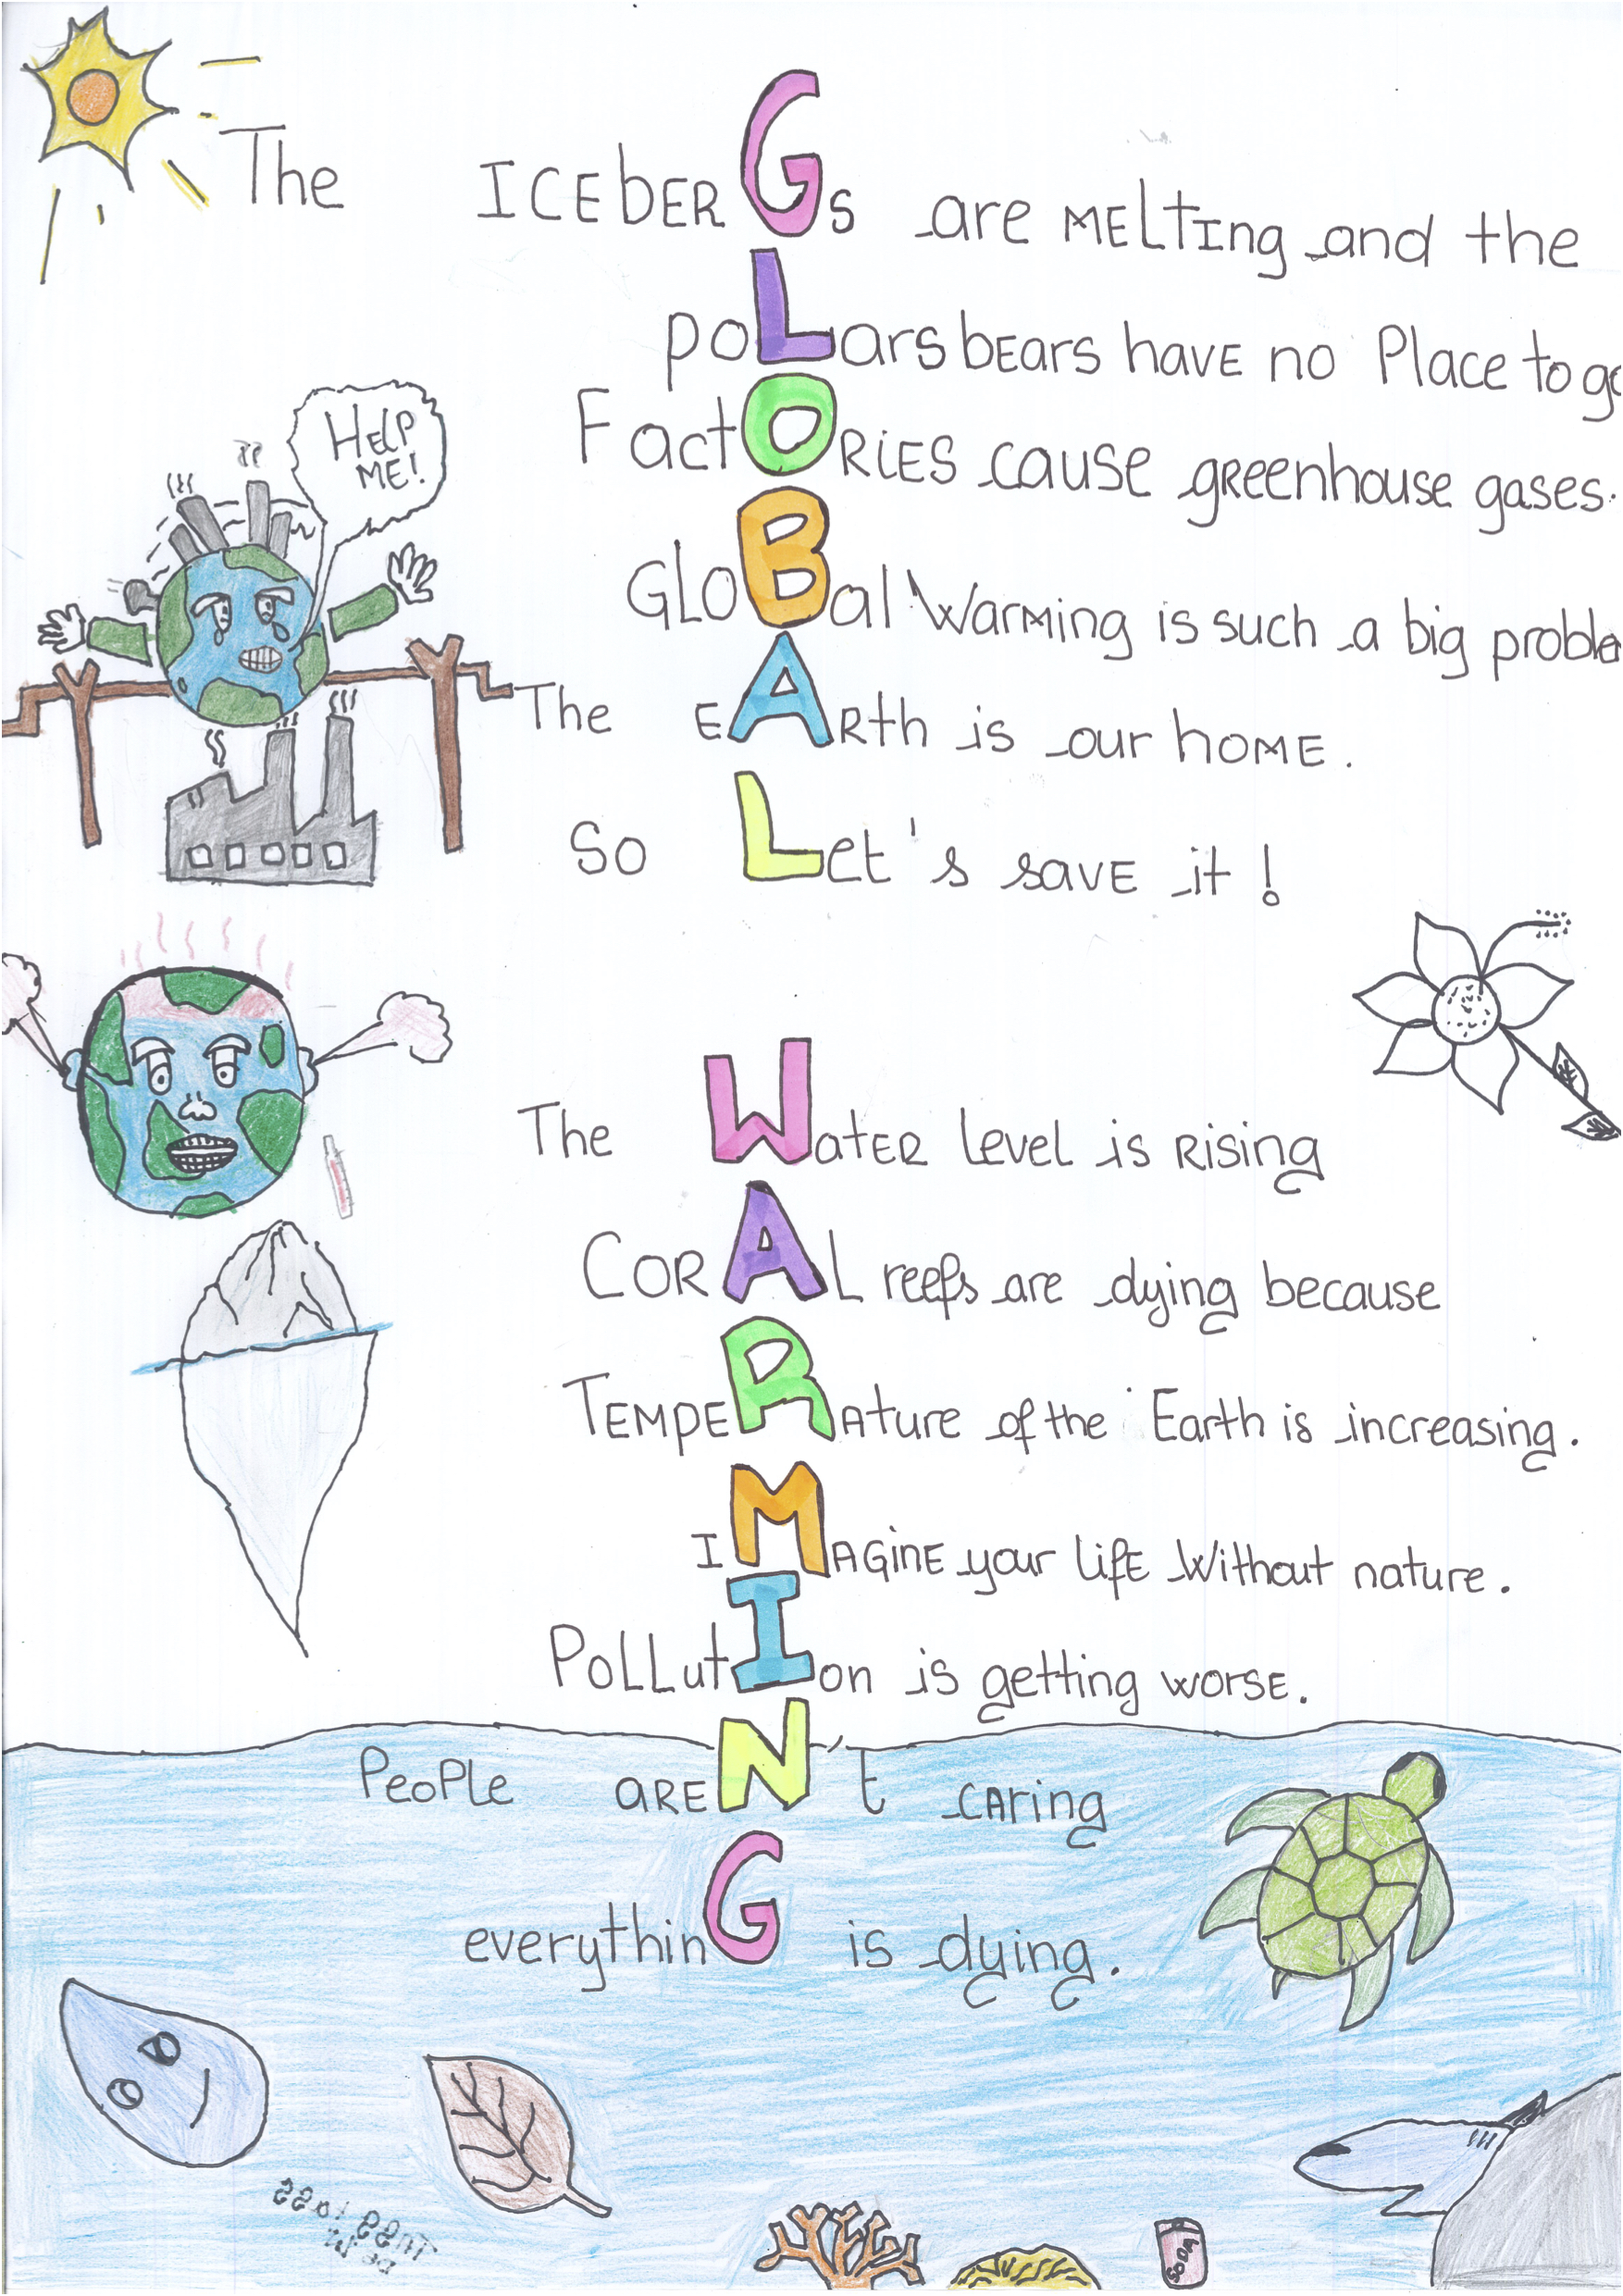 The ICEbERGs are MELtIng and the
poLars bEars havE no Place to go
FactORiES cause greenhouse gases.
GLOBal Warming is such a big proble
The EARth is our hOME.
So Let's savE it!
HELP
ME!
The WatER level is Rising
CORAL reefs are dying because
TEMPERAture of the Earth is increasing.
IMAGinE your lifE Without nature.
PoLLutIon is getting worsE.
PeoPle areN't cAring
everythinG is dying.
SODA